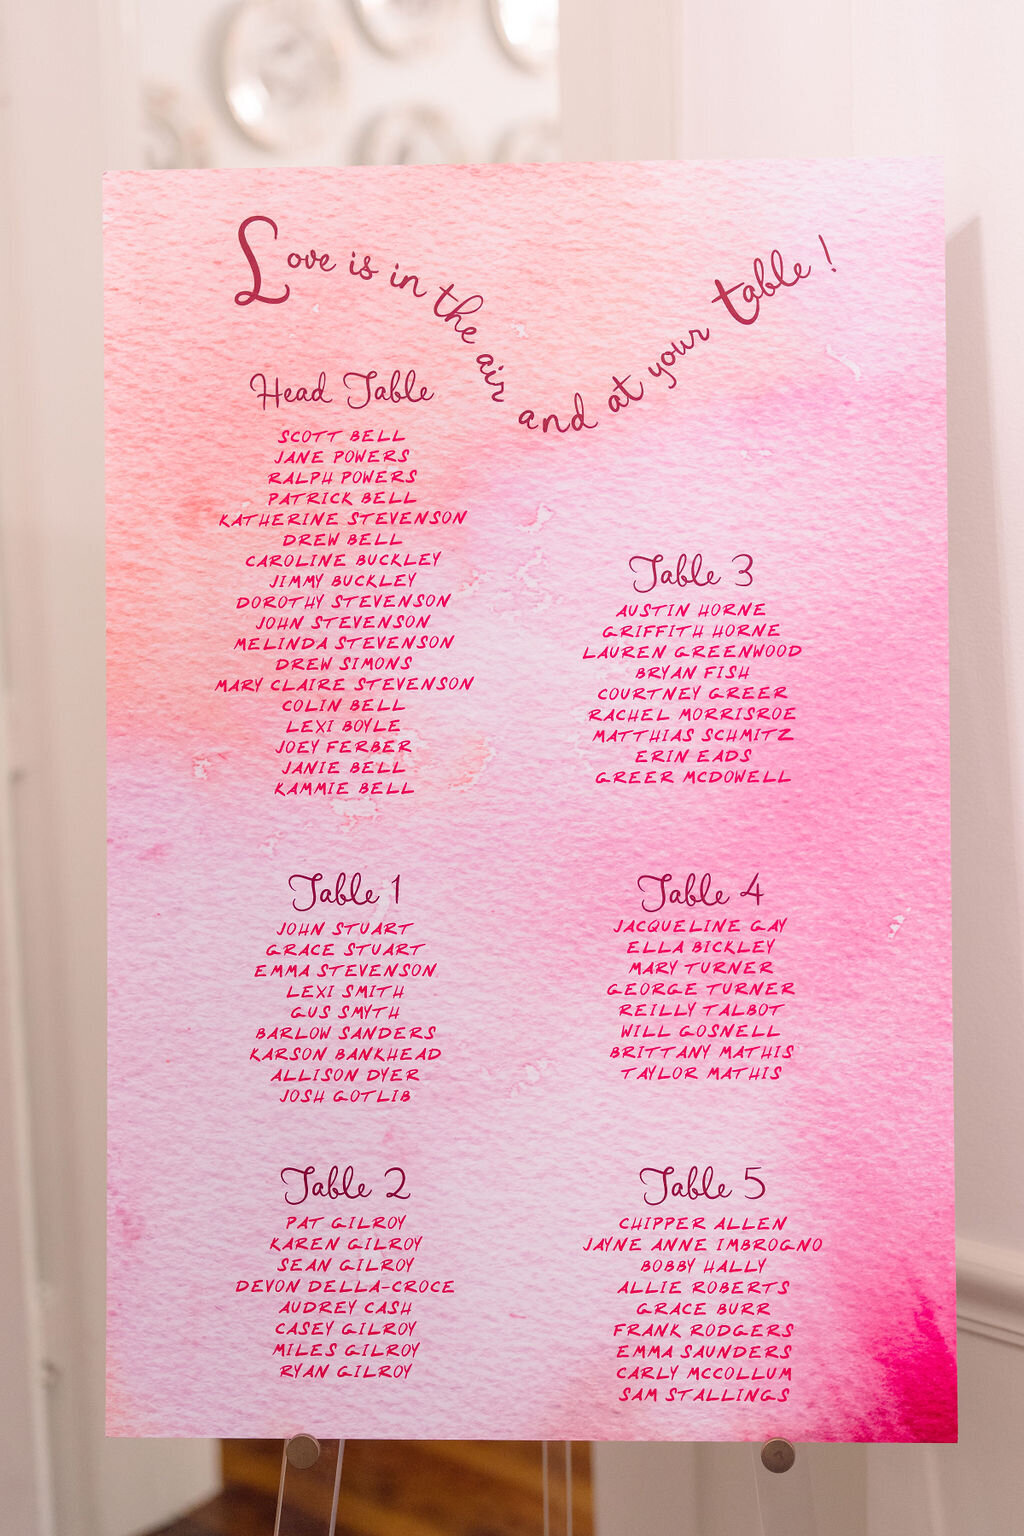 Love is in the air and at your table!
Head Table
SCOTT BELL
JANE POWERS
RALPH POWERS
PATRICK BELL
KATHERINE STEVENSON
DREW BELL
CAROLINE BUCKLEY
JIMMY BUCKLEY
DOROTHY STEVENSON
JOHN STEVENSON
MELINDA STEVENSON
DREW SIMONS
MARY CLAIRE STEVENSON
COLIN BELL
LEXI BOYLE
JOEY FERBER
JANIE BELL
KAMMIE BELL
Table 1
JOHN STUART
GRACE STUART
EMMA STEVENSON
LEXI SMITH
GUS SMYTH
BARLOW SANDERS
KARSON BANKHEAD
ALLISON DYER
JOSH GOTLIB
Table 2
PAT GILROY
KAREN GILROY
SEAN GILROY
DEVON DELLA-CROCE
AUDREY CASH
CASEY GILROY
MILES GILROY
RYAN GILROY
Table 3
AUSTIN HORNE
GRIFFITH HORNE
LAUREN GREENWOOD
BRYAN FISH
COURTNEY GREER
RACHEL MORRISROE
MATTHIAS SCHMITZ
ERIN EADS
GREER MCDOWELL
Table 4
JACQUELINE GAY
ELLA BICKLEY
MARY TURNER
GEORGE TURNER
REILLY TALBOT
WILL GOSNELL
BRITTANY MATHIS
TAYLOR MATHIS
Table 5
CHIPPER ALLEN
JAYNE ANNE IMBROGNO
BOBBY HALLY
ALLIE ROBERTS
GRACE BURR
FRANK RODGERS
EMMA SAUNDERS
CARLY MCCOLLUM
SAM STALLINGS